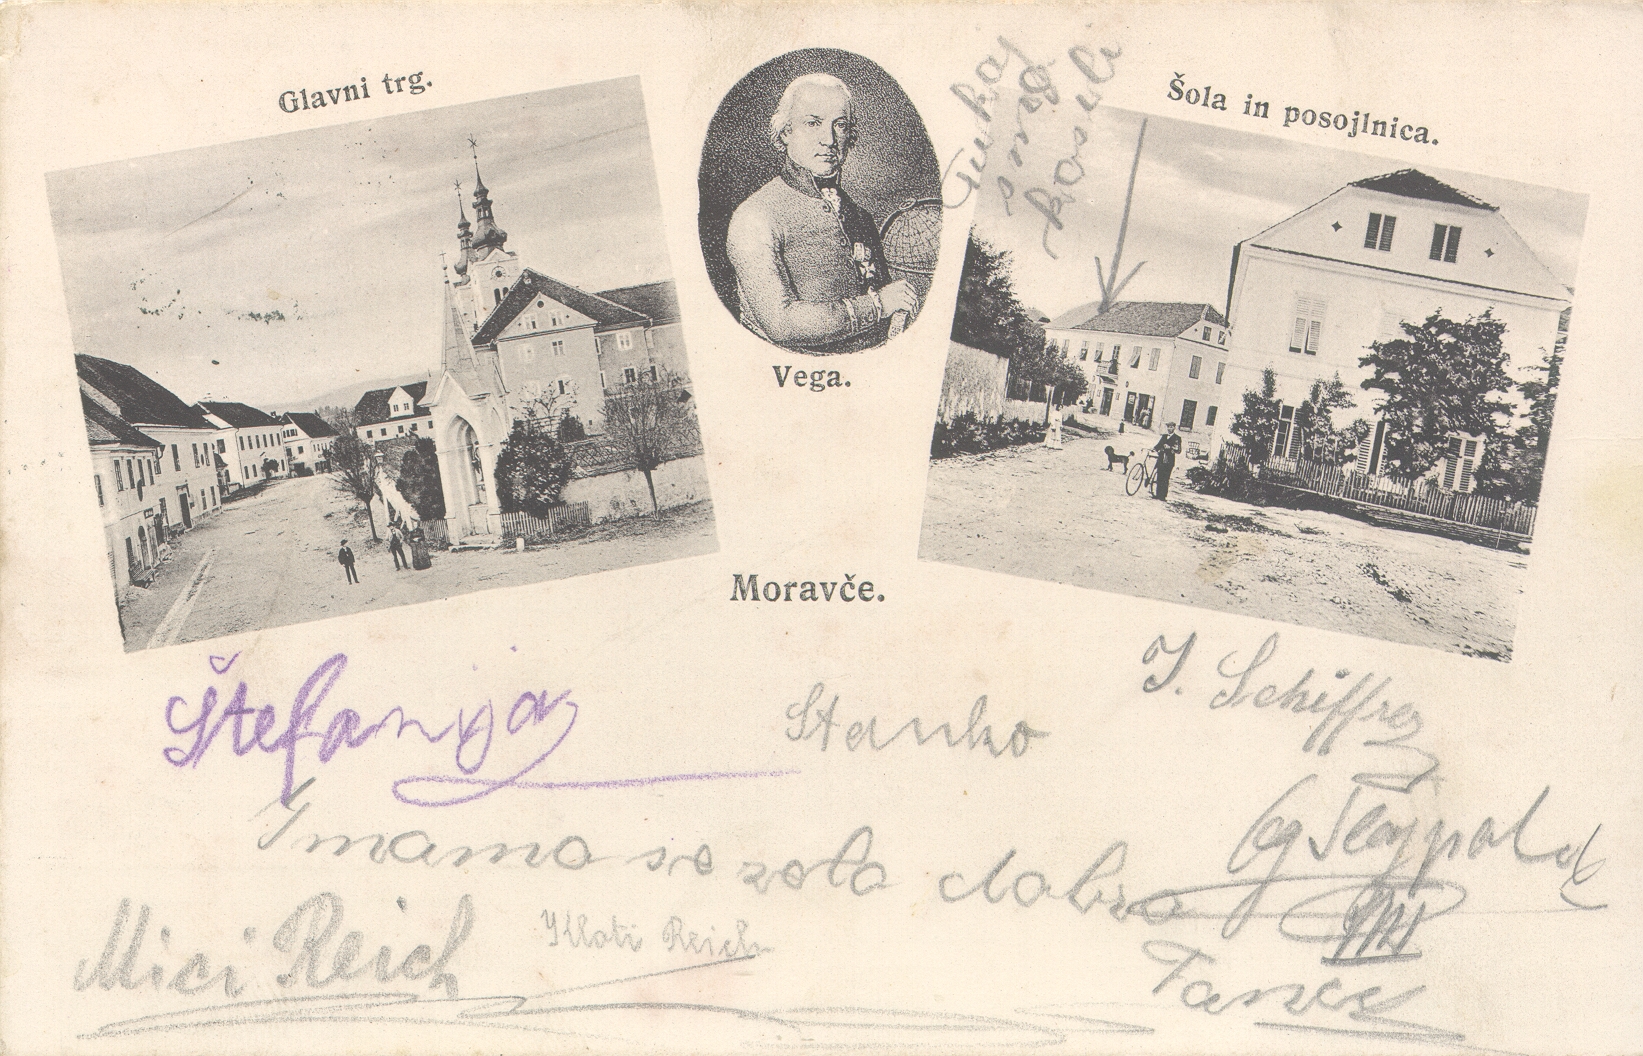 Glavni trg.
Šola in posojlnica.
Tukaj
smo
kosili
Vega.
Moravče.
Štefanija
Stanko
J. Schiffrer
Imamo se zelo dobro
Mici Reich
Reich